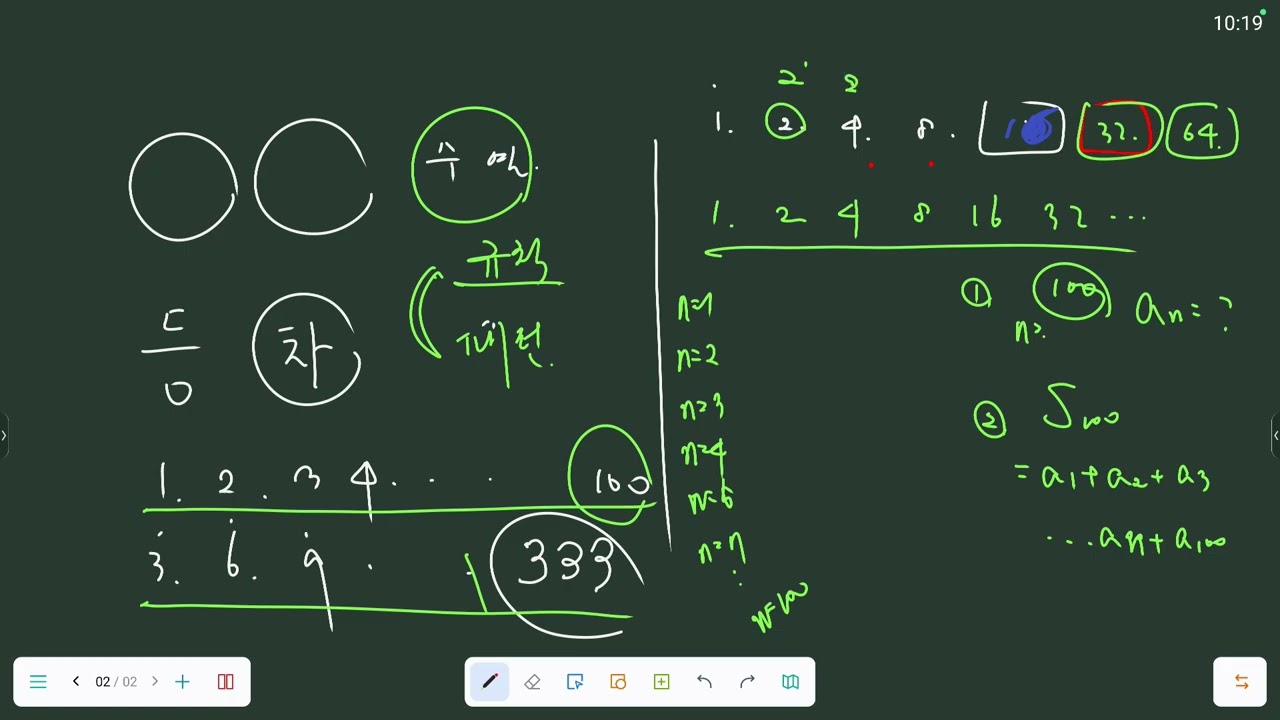 10:19
수 열.
규칙
개편
ㄷ
ㅇ
차
1. 2. 3 4. . . 100
3. 6. 9 . . 333
2 8
1. 2. 4. 8. 16 32. 64.
1. 2 4 8 16 32 ...
n=1
n=2
n=3
n=4
n=5
n=n
n=100
① 100 an=?
n=
② S100
= a1+a2+a3
...an+a100
02 / 02